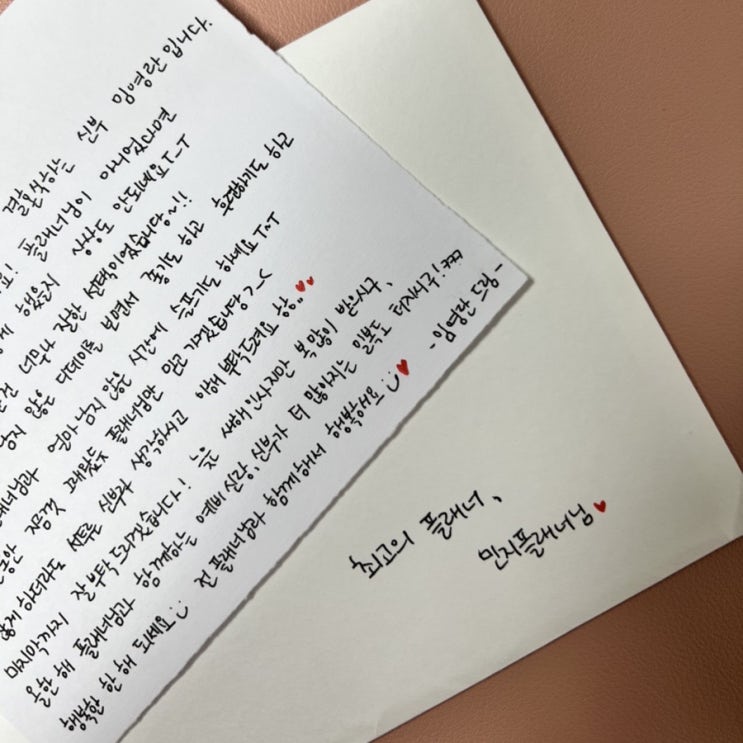 결혼식하는 신부 임영란입니다.
요! 플래너님이 아니었다면
게 했을지 상상도 안되네요T-T
너무나 잘한 선택이었습니다~!!
남지 않은 디데이를 보면서 좋기도 하고 후련하기도 하고
얼마 남지 않은 시간에 슬프기도 하네요T-T
지금껏 해왔듯 플래너님만 믿고 가겠습니당>_<
하더라도 서툰 신부라 생각하시고 이해 부탁드려요 항..♥♥
마지막까지 잘 부탁드리겠습니다! 늦은 새해인사지만 복 많이 받으시구,
올 한 해 플래너님과 함께하는 예비 신랑, 신부가 더 많아지는 일복도 터지시구!ㅋㅋㅋ
행복한 한 해 되세요:) 전 플래너님과 함께해서 행복해요:)♥ -임영란 드림-
최고의 플래너,
민지플래너님♥